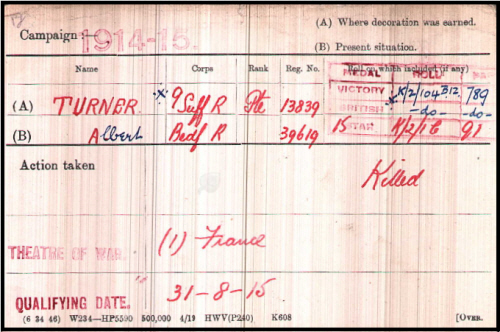 (A) Where decoration was earned.
Campaign:- 1914-15.
(B) Present situation.
Name Corps Rank Reg. No. Roll on which included (if any)
MEDAL ROLL
(A) TURNER x 9 Suff R Pte 13839 VICTORY K/2/104 B12 789
x BRITISH -do- -do-
(B) Albert Bedf R 39619 15 STAR K/2/1 91
Action taken
Killed
THEATRE OF WAR. (1) France
QUALIFYING DATE. 31-8-15
(6 34 46) W234—HP5590 500,000 4/19 HWV(P240) K608 [OVER.